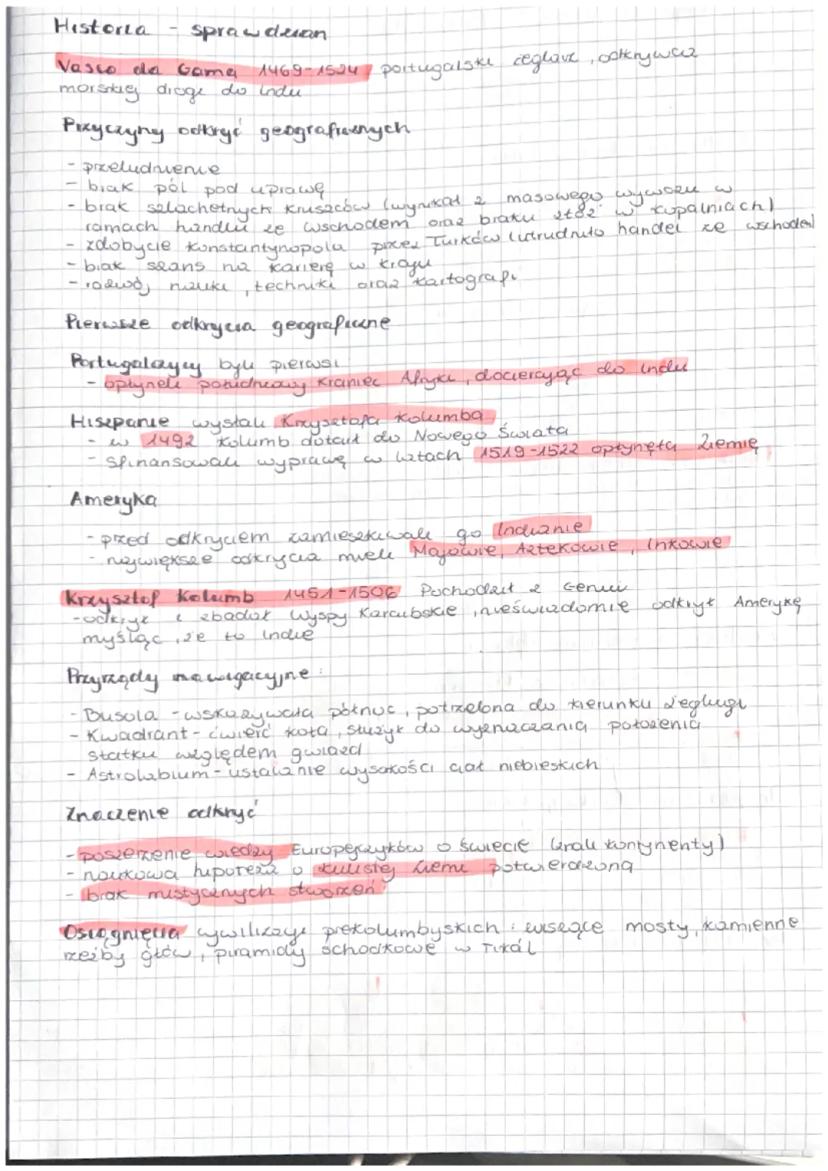 Historia - sprawdzian
Vasco da Gama 1469-1524 portugalski żeglarz, odkrywca
morskiej drogi do Indii
Przyczyny odkryć geograficznych
- przeludnienie
- brak pól pod uprawę
- brak szlachetnych kruszców (wynikał z masowego wywozu w
ramach handlu ze wschodem oraz braku złóż w kopalniach)
- zdobycie Konstantynopola przez Turków (utrudniło handel ze wschodem)
- brak szans na karierę w kraju
- rozwój nauki, techniki oraz kartografi
Pierwsze odkrycia geograficzne
Portugalczycy byli pierwsi
- opłyneli południowy kraniec Afryki, docierając do Indii
Hiszpanie wysłali Krzysztofa Kolumba
- w 1492 Kolumb dotarł do Nowego Świata
- sfinansowali wyprawę w latach 1519-1522 opłynęła Ziemię
Ameryka
- przed odkryciem zamieszkiwali go Indianie
- największe odkrycia mieli Majowie, Aztekowie, Inkowie
Krzysztof Kolumb 1451-1506 Pochodził z Genui
- odkrył i zbadał Wyspy Karaibskie, nieświadomie odkrył Amerykę
myśląc, że to Indie
Przyrządy nawigacyjne:
- Busola - wskazywała północ, potrzebna do kierunku żeglugi
- Kwadrant - ćwierć koła, służył do wyznaczania położenia
statku względem gwiazd
- Astrolabium - ustalanie wysokości ciał niebieskich
Znaczenie odkryć
- poszerzenie wiedzy Europejczyków o świecie (znali kontynenty)
- naukowa hipoteza o kulistej Ziemi potwierdzona
- brak mistycznych stworzeń
Osiągnięcia cywilizacji prekolumbijskich: wiszące mosty, kamienne
rzeźby głów, piramidy schodkowe w Tikál